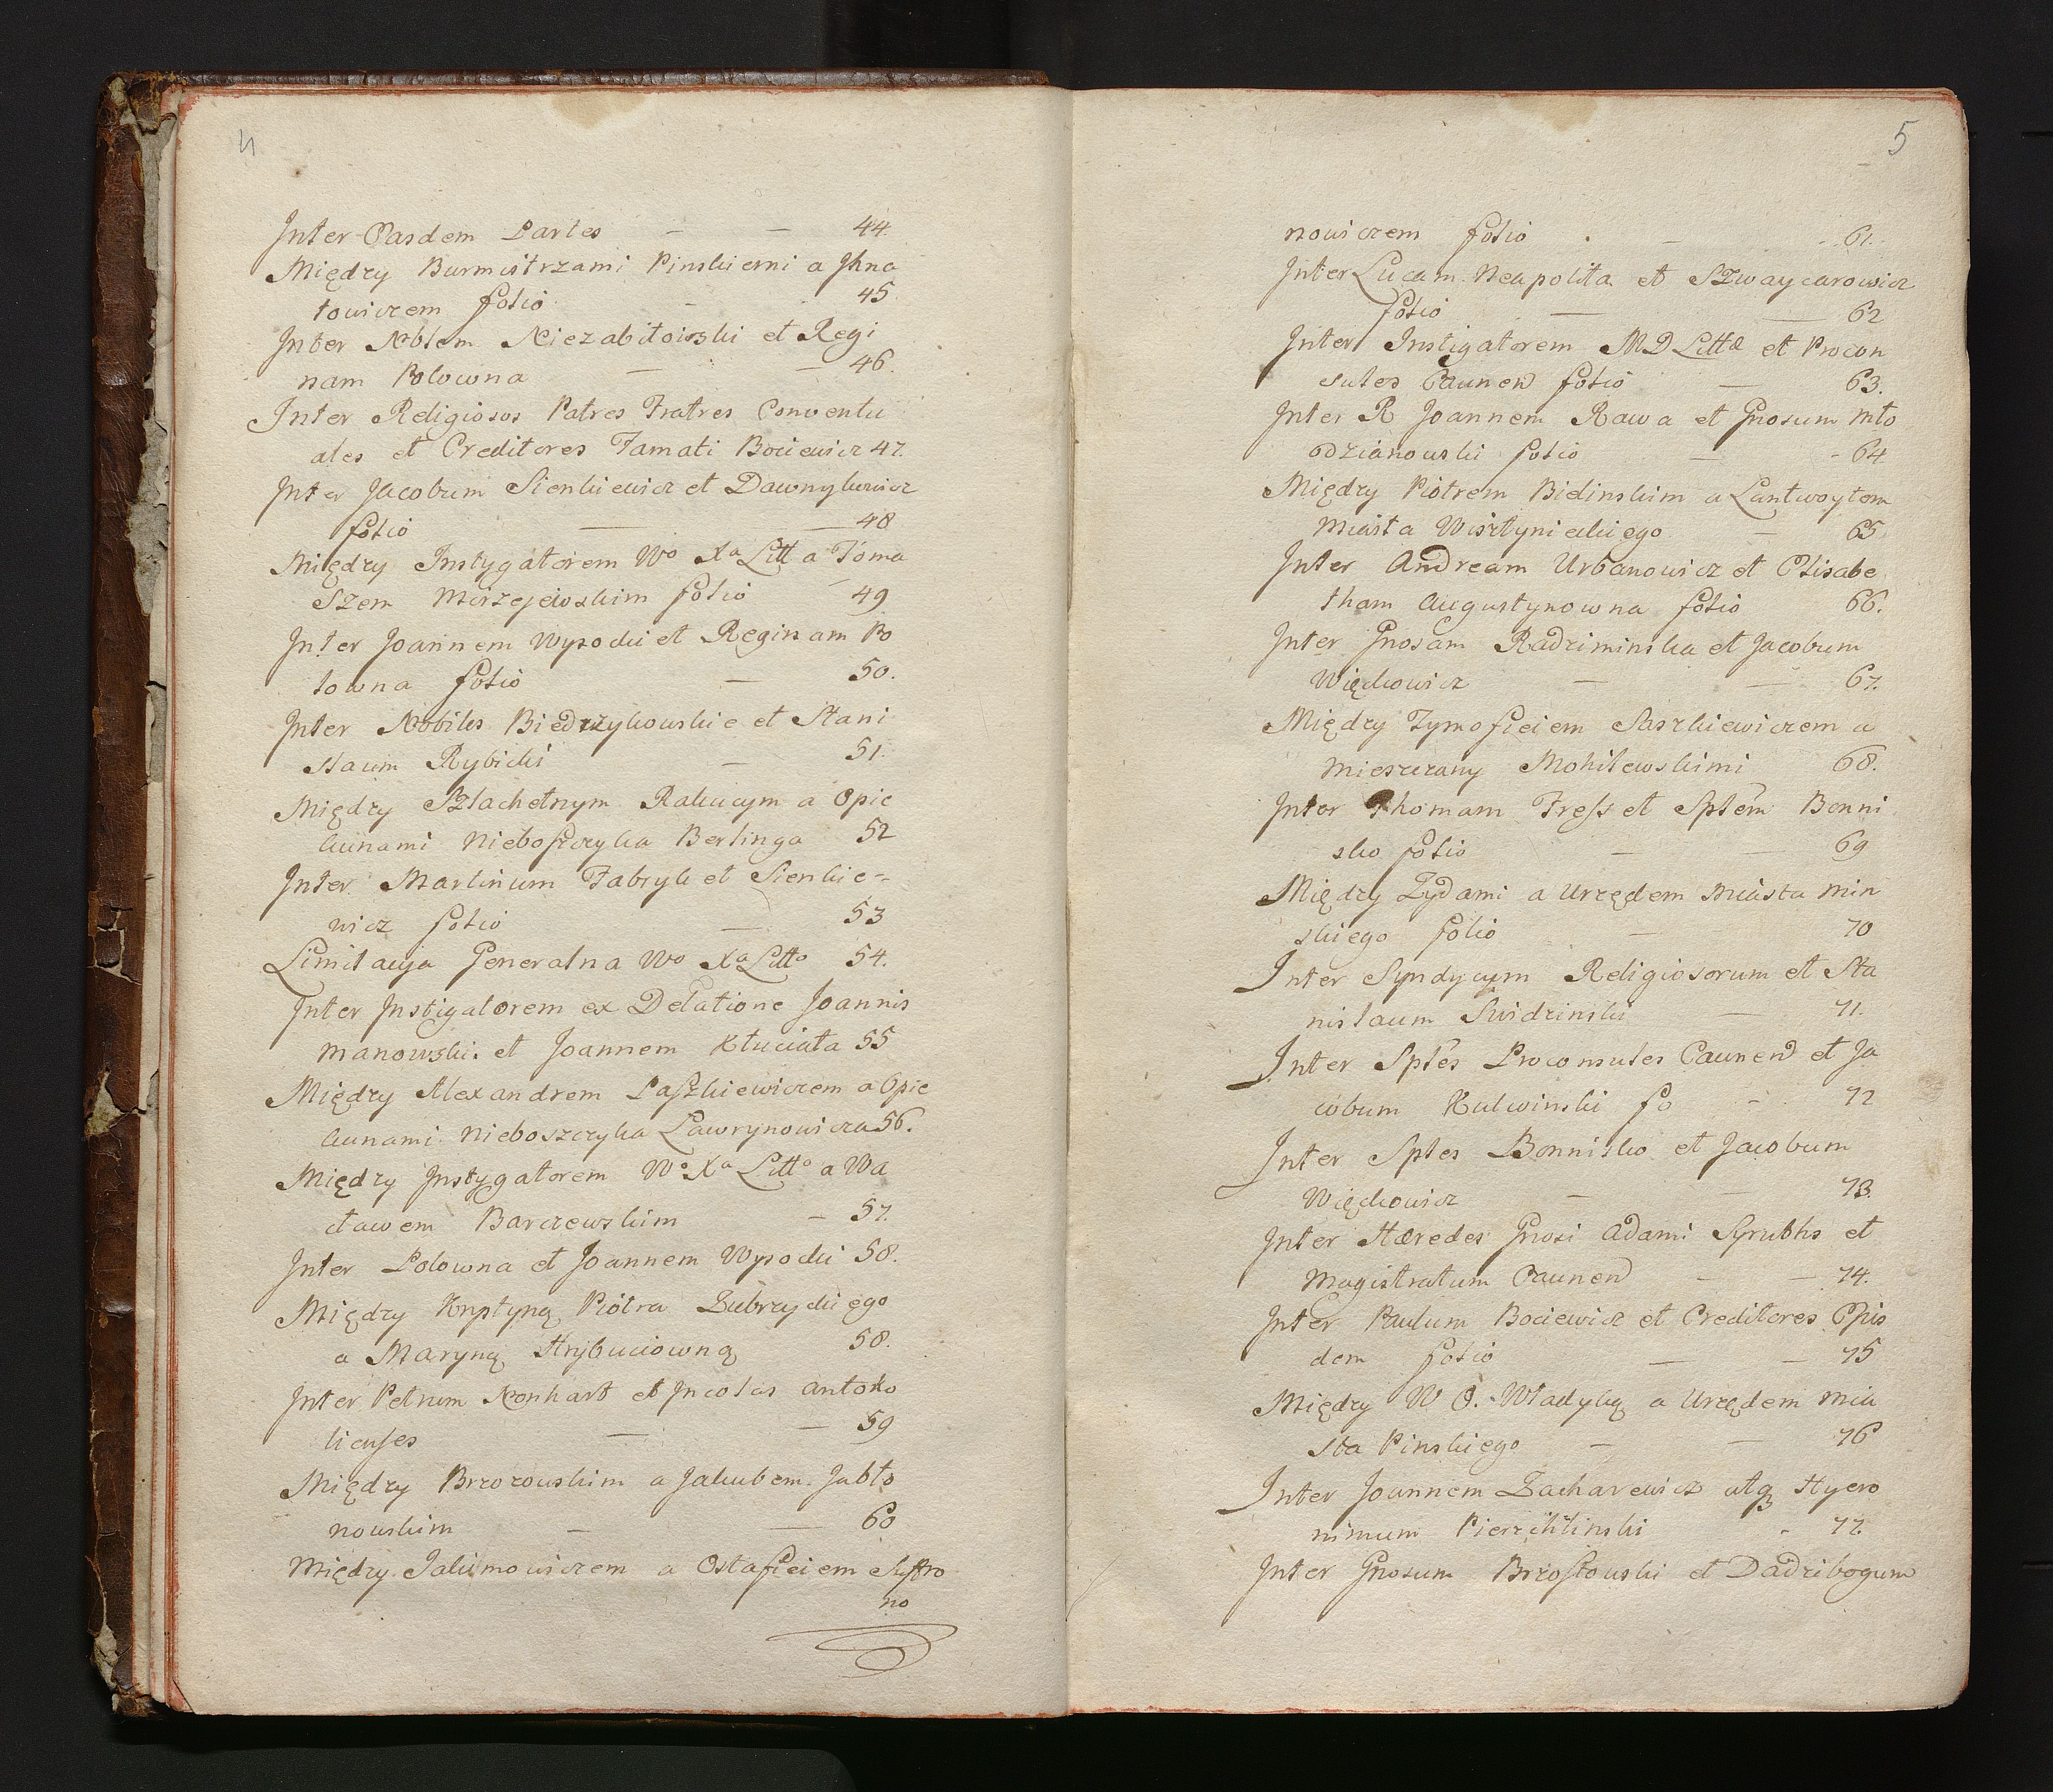 4
Inter Easdem Partes — — 44.
Między Burmistrzami Pinskiemi a Ihna
towiczem folio — 45.
Inter Nblem Niezabitowski et Regi
nam Polowna — — 46.
Inter Religiosos Patres Fratres Conventu
ales et Creditores Famati Bociewicz 47.
Inter Jacobum Sienkiewicz et Dawnylewicz
folio — — 48
Między Instygatorem Wo Xa Litt a Toma
szem Mierzejewskim folio — 49
Inter Joannem Wysocki et Reginam Po
lowna folio — 50.
Inter Nobiles Biedrzykowskie et Stani
slaum Rybicki — 51.
Między Szlachetnym Rakucym a Opie
kunami Nieboszczyka Berlinga 52
Inter Martinum Fabryk et Sienkie-
wicz folio — 53
Limitacyja Generalna Wo Xa Litto 54.
Inter Instigatorem ex Delatione Joannis
Manowski et Joannem Kluciata 55
Między Alexandrem Paszkiewiczem a Opie
kunami Nieboszczyka Lawrynowicza 56.
Między Instygatorem Wo Xa Litto a Wa
cławem Barczewskim — 57.
Inter Polowna et Joannem Wysocki 58.
Między Krystyną Piotra Zubrzyckiego
a Maryną Hrybuciowną 58.
Inter Petrum Nonhart et Incolas Antoko
licenses — — 59
Między Brzozowskim a Jakubem Jabło
nowskim — — 60
Między Jakimowiczem a Ostafieiem
no
5
nowiczem folio . — 61.
Inter Lucam Neapolita et Szwaycarowicz
folio — — 62
Inter Instigatorem M D Litta et Procon
sules Caunen folio — 63.
Inter R Joannem Rawa et Gnosum Mło
dzianowski folio — 64
Między Piotrem Bidinskim a Lantwoytem
Miasta Wisztynieckiego — 65
Inter Andream Urbanowicz et Elisabe
tham Augustynowna folio 66.
Inter Gnosam Radziminska et Jacobum
Więckowicz — — 67.
Między Tymofieiem Saszkiewiczem a
Mieszczany Mohilewskimi 68.
Inter Thomam Fress et Sptem Bonni
sko folio — — 69
Między Żydami a Urzędem Miasta Min
skiego folio — 70
Inter Syndycum Religiosorum et Sta
nislaum Swidzinski — 71.
Inter Sptes Proconsules Caunen et Ja
cobum Kulwinski fo - 72
Inter Sptes Bonnisko et Jacobum
Więckowicz — — 73.
Inter Hæredes Gnosi Adami Syrubhs et
Magistratum Caunen — — 74.
Inter Paulum Bociewicz et Creditores Ejus
dem folio — — 75
Między W O. Władyką a Urzędem Mia
sta Pinskiego — — 76
Inter Joannem Zacharewicz atq Hyero
nimum - 77.
Inter Gnosum Brzostowski et Dadzibogum